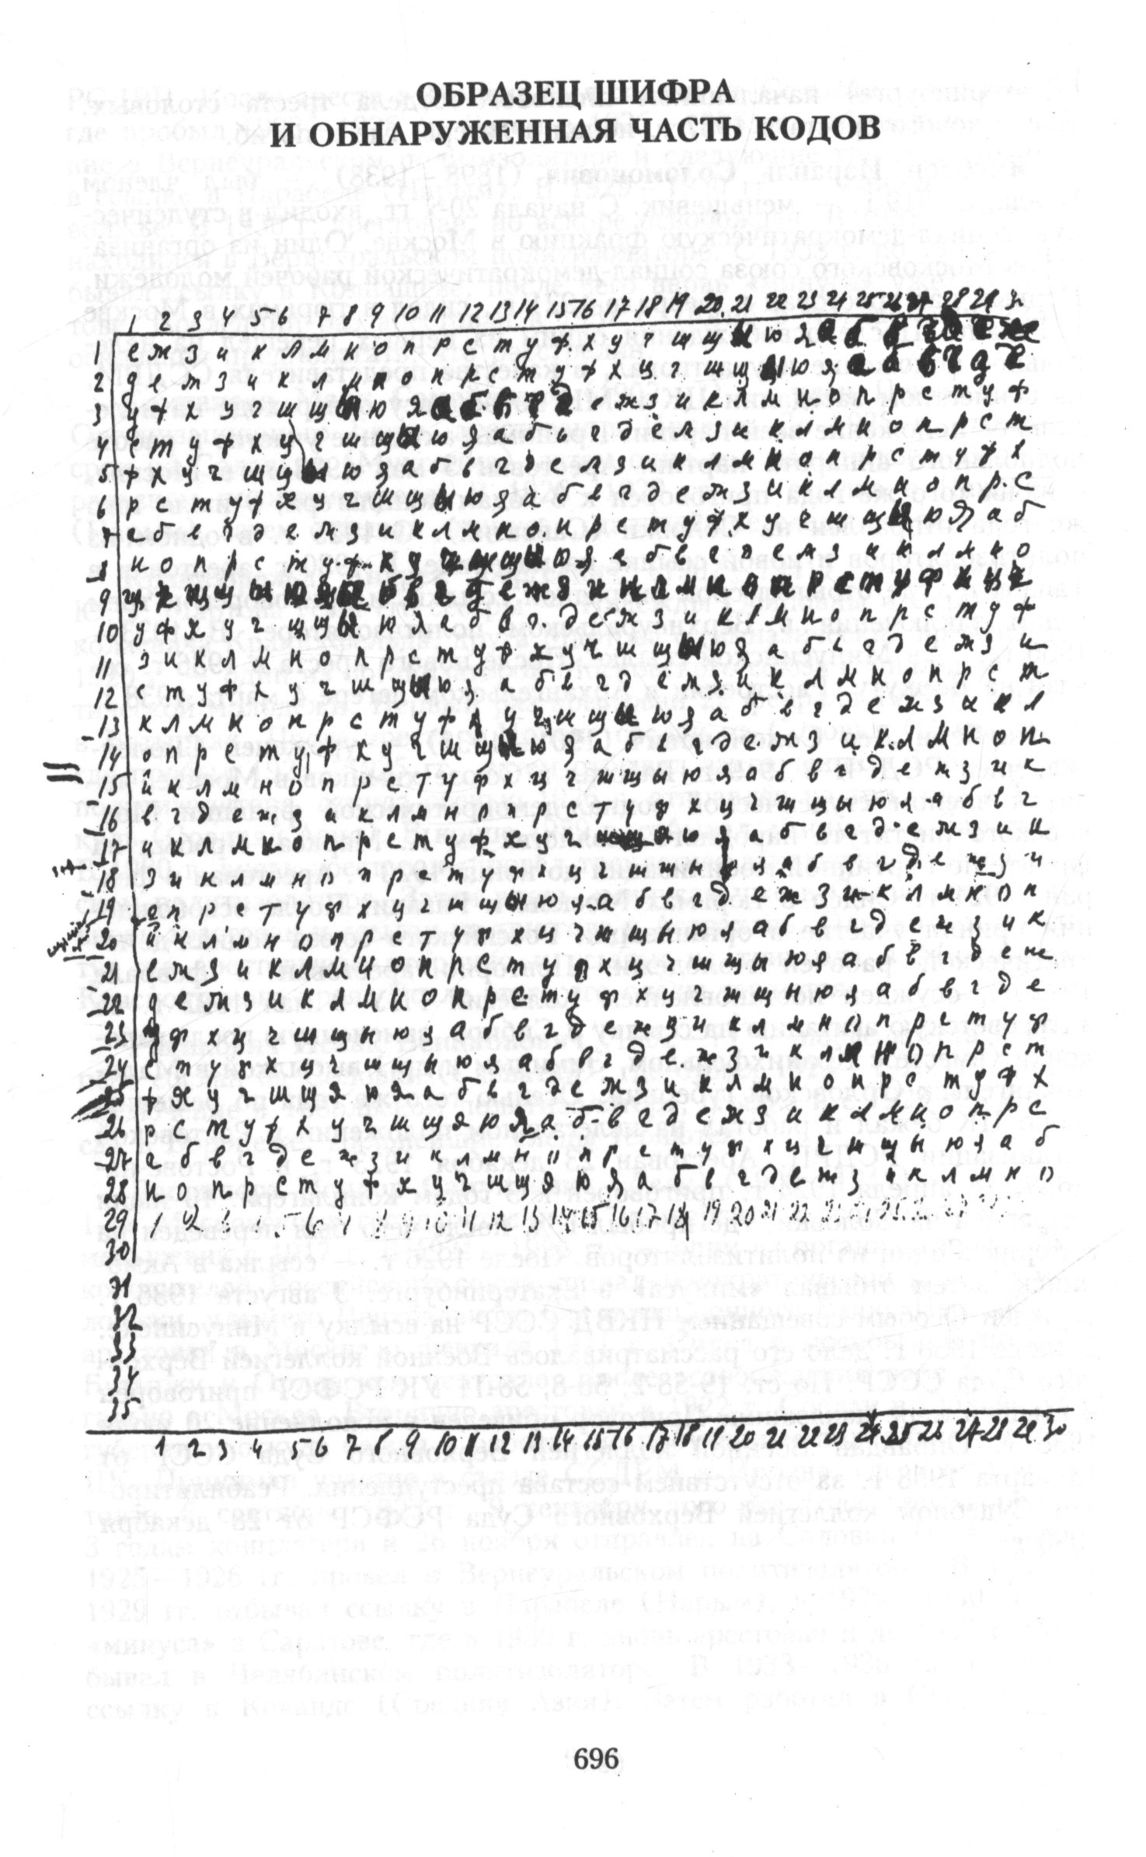 ОБРАЗЕЦ ШИФРА
И ОБНАРУЖЕННАЯ ЧАСТЬ КОДОВ
1 2 3 4 5 6 7 8 9 10 11 12 13 14 15 16 17 18 19 20 21 22 23 24 25 26 27 28 29 30
1 е ж з и к л м н о п р с т у ф х ц ч ш щ ы ю я а б в г д е ж
2 д е ж з и к л м н о п р с т у ф х ц ч ш щ ы ю я а б в г д е
3 у ф х ц ч ш щ ы ю я а б в г д е ж з и к л м н о п р с т у ф
4 с т у ф х ц ч ш щ ы ю я а б в г д е ж з и к л м н о п р с т
5 ф х ц ч ш щ ы ю я а б в г д е ж з и к л м н о п р с т у ф х
6 р с т у ф х ц ч ш щ ы ю я а б в г д е ж з и к л м н о п р с
7 а б в г д е ж з и к л м н о п р с т у ф х ц ч ш щ ы ю я а б
8 н о п р с т у ф х ц ч ш щ ы ю я а б в г д е ж з и к л м н о
9
10 у ф х ц ч ш щ ы ю я а б в г д е ж з и к л м н о п р с т у ф
11 з и к л м н о п р с т у ф х ц ч ш щ ы ю я а б в г д е ж з и
12 с т у ф х ц ч ш щ ы ю я а б в г д е ж з и к л м н о п р с т
13 к л м н о п р с т у ф х ц ч ш щ ы ю я а б в г д е ж з и к л
14 о п р с т у ф х ц ч ш щ ы ю я а б в г д е ж з и к л м н о п
15 и к л м н о п р с т у ф х ц ч ш щ ы ю я а б в г д е ж з и к
16 в г д е ж з и к л м н о п р с т у ф х ц ч ш щ ы ю я а б в г
17 и к л м н о п р с т у ф х ц ч ш щ ю я а б в г д е ж з и к
18 з и к л м н о п р с т у ф х ц ч ш щ ы ю я а б в г д е ж з и
19 о п р с т у ф х ц ч ш щ ы ю я а б в г д е ж з и к л м н о п
20 и к л м н о п р с т у ф х ц ч ш щ ы ю я а б в г д е ж з и к
21 е ж з и к л м н о п р с т у ф х ц ч ш щ ы ю я а б в г д е ж
22 д е ж з и к л м н о п р с т у ф х ц ч ш щ ы ю я а б в г д е
23 у ф х ц ч ш щ ы ю я а б в г д е ж з и к л м н о п р с т у ф
24 с т у ф х ц ч ш щ ы ю я а б в г д е ж з и к л м н о п р с т
25 ф х ц ч ш щ я ю я а б в г д е ж з и к л м н о п р с т у ф х
26 р с т у ф х ц ч ш щ я ю я а б в г д е ж з и к л м н о п р с
27 а б в г д е ж з и к л м н о п р с т у ф х ц ч ш щ ы ю я а б
28 н о п р с т у ф х ц ч ш щ я ю я а б в г д е ж з и к л м н о
29 1 2 6 1 8 9 10 11 12 13 14 15 16 17 18 19 20 21 22
30
31
32
33
34
35
1 2 3 4 5 6 7 8 9 10 11 12 13 14 15 16 17 18 19 20 21 22 23 24 25 26 27 28 29 30
696